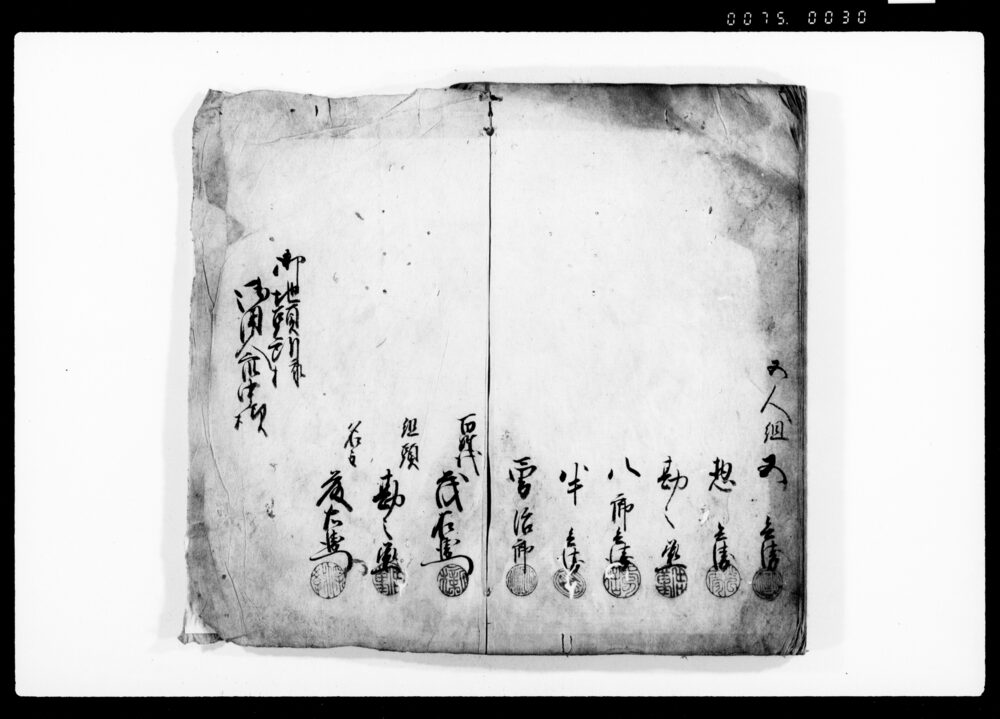 0075. 0030
五人組 五兵衛
惣兵衛
勘之丞
八郎兵衛
半兵衛
雲治郎
百姓代 茂右衛門
組頭 勘之丞
名主
御地頭所様
御用人中様